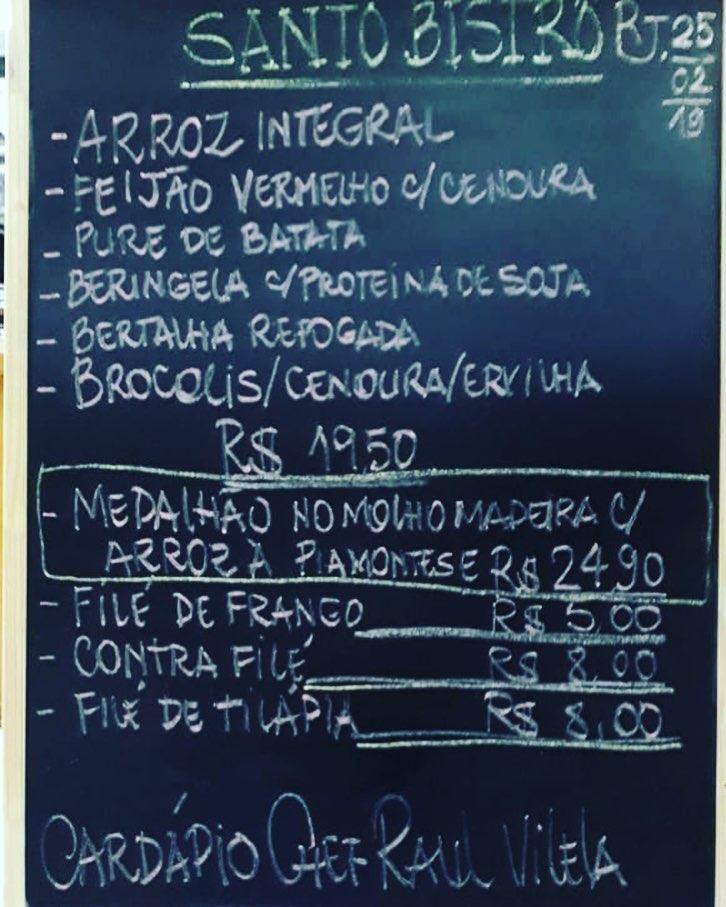 SANTO BISTRÔ BJ. 25
02
19
- ARROZ INTEGRAL
- FEIJÃO VERMELHO C/CENOURA
- PURE DE BATATA
- BERINGELA C/PROTEÍNA DE SOJA
- BERTALHA REFOGADA
- BROCOLIS/CENOURA/ERVILHA
R$ 19,50
- MEDALHÃO NO MOLHO MADEIRA C/
ARROZ À PIAMONTESE R$ 24,90
- FILÉ DE FRANGO R$ 5,00
- CONTRA FILÉ R$ 8,00
- FILÉ DE TILÁPIA R$ 8,00
CARDÁPIO CHEF RAUL VILELA